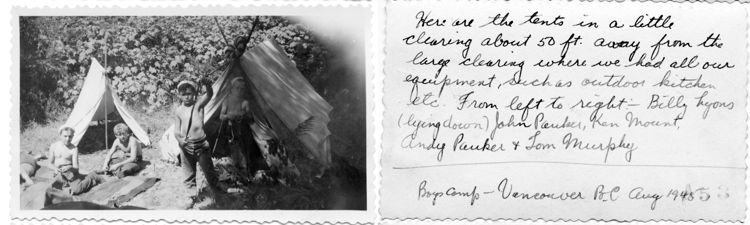 Here are the tents in a little
clearing about 50 ft. away from the
large clearing where we had all our
equipment, such as outdoor kitchen
etc. From left to right:- Billy Lyons
(lying down) John Pauker, Ken Mount,
Andy Pauker & Tom Murphy
Boys Camp - Vancouver B.C Aug